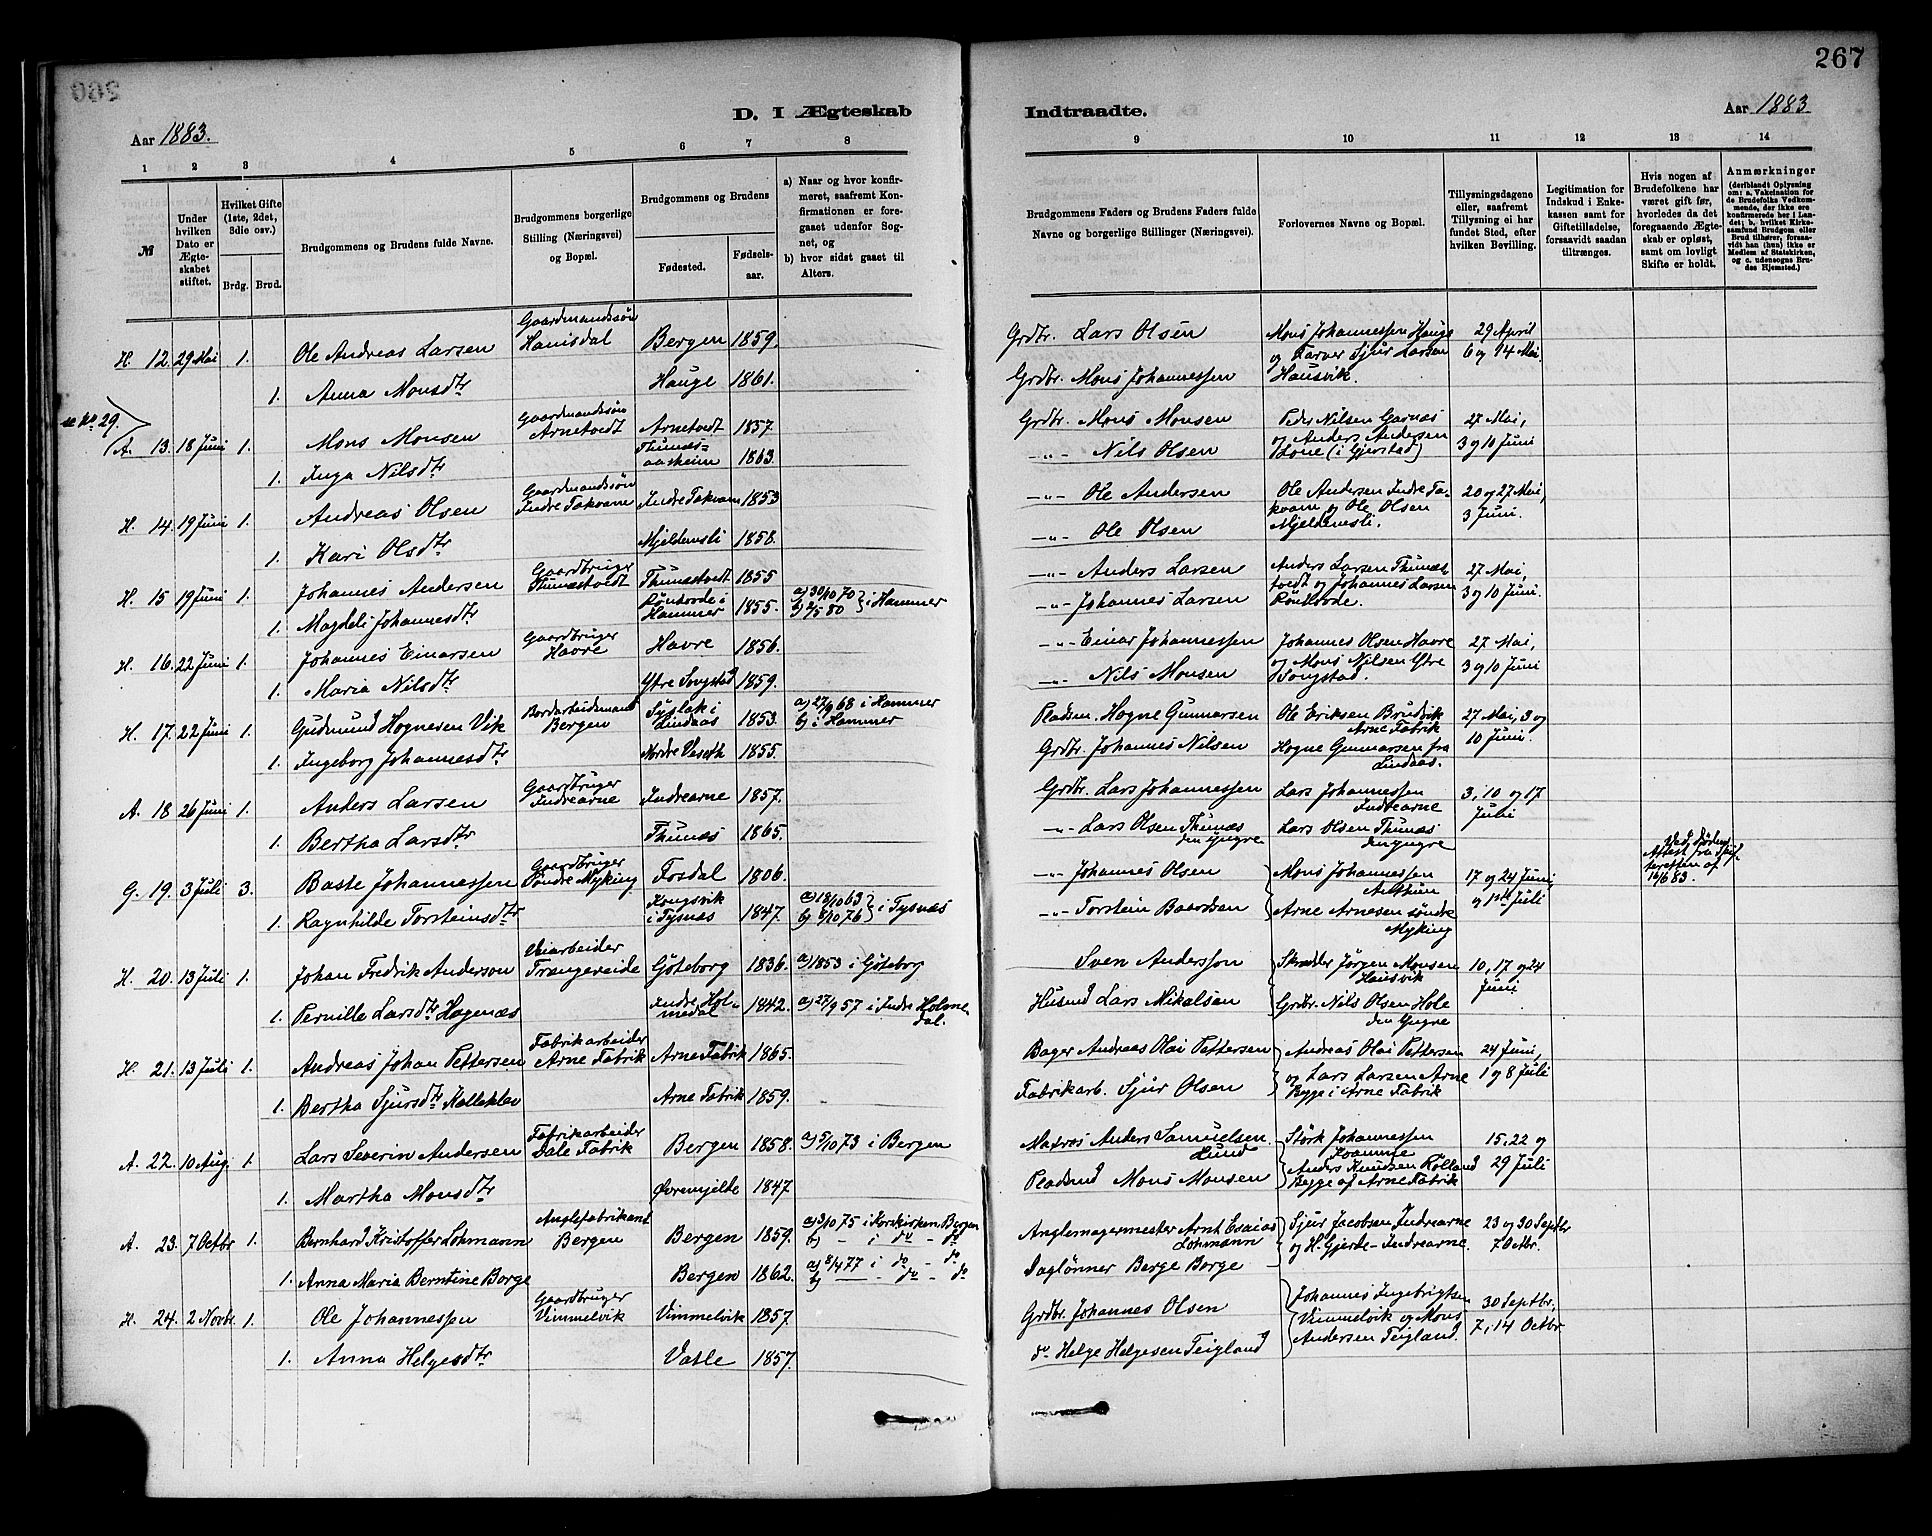 267
D. I Ægteskab Indtraadte.
Aar 1883.
Aar 1883.
1 2 3 4 5 6 7 8
9 10 11 12 13 14
№
Under hvilken Dato er Ægteskabet stiftet.
Hvilket Gifte (1ste, 2det, 3die osv.)
Brdg. Brud.
Brudgommens og Brudens fulde Navne.
Brudgommens borgerlige Stilling (Næringsvei) og Bopæl.
Brudgommens og Brudens
Fødested. Fødselsaar.
a) Naar og hvor konfirmeret, saafremt Konfirmationen er foregaaet udenfor Sognet, og
b) hvor sidst gaaet til Alters.
Brudgommens Faders og Brudens Faders fulde Navne og borgerlige Stillinger (Næringsvei).
Forlovernes Navne og Bopæl.
Tillysningsdagene eller, saafremt Tillysning ei har fundet Sted, efter hvilken Bevilling.
Legitimation for Indskud i Enkekassen samt for Giftetilladelse, forsaavidt saadan tiltrænges.
Hvis nogen af Brudefolkene har været gift før, hvorledes da det foregaaende Ægteskab er opløst, samt om lovligt Skifte er holdt.
Anmærkninger
(deriblandt Oplysning om: a. Vakcination for de Brudefolks Vedkommende, der ikke ere konfirmerede her i Landet; b. hvilket Kirkesamfund Brudgom eller Brud tilhører, forsaavidt han (hun) ikke er Medlem af Statskirken, og c. udensogns Brudes Hjemsted.)
H. 12. 29 Mai 1. Ole Andreas Larsen Gaardmandssøn Hanisdal Bergen 1859. Grdbr. Lars Olsen Mons Johannessen Hauge og Farver Sjur Larsen Hausvik. 29 April 6 og 14 Mai.
1. Anna Monsdtr Hauge 1861. Grdbr. Mons Johannessen
se No 29.
A. 13. 18 Juni 1. Mons Monsen Gaardmandssøn Arnetvedt Arnetvedt 1857. Grdbr. Mons Monsen Peder Nilsen Garnæs og Anders Andersen Lone (i Gjerstad) 27 Mai, 3 og 10 Juni
1. Inga Nilsdtr Thunæsaasheim 1863. -"- Nils Olsen
H. 14. 19 Juni 1. Andreas Olsen Gaardmandssøn Indre Takvam Indre Takvam 1853 -"- Ole Andersen Ole Andersen Indre Takvam og Ole Olsen Mjeldemsli. 20 og 27 Mai, 3 Juni.
1. Kari Olsdtr Mjeldemsli 1858. -"- Ole Olsen
H. 15 19 Juni 1. Johannes Andersen Gaardbruger Thunæstvedt Thunæstvedt 1855 -"- Anders Larsen Anders Larsen Thunæstvedt og Johannes Larsen 27 Mai, 3 og 10 Juni.
1. Magdeli Johannesdtr i Hammer 1855. a) 30/10 70 b) 2/5 80 } i Hammer -"- Johannes Larsen
H. 16. 22 Juni 1. Johannes Einarsen Gaardbruger Havre Havre 1856. -"- Einar Johannessen Johannes Olsen Havre og Mons Nilsen Ytre Songstad. 27 Mai, 3 og 10 Juni
1. Maria Nilsdtr Ytre Songstad 1859. -"- Nils Monsen
H. 17. 22 Juni 1. Gudmund Hognesen Vik Bordarbeidsmand Bergen i Lindaas 1853. a) 27/9 68 i Hammer b) i Hammer Pladsm. Hogne Gunnarsen Ole Eriksen Brudvik Arne Fabrik 27 Mai, 3 og 10 Juni.
1. Ingeborg Johannesdtr Nordre Vaseth 1855. Grdbr. Johannes Nilsen Hogne Gunnarsen fra Lindaas.
A. 18 26 Juni 1. Anders Larsen Gaardbruger Indrearne Indrearne 1857. Grdbr. Lars Johannessen Lars Johannessen Indrearne 3, 10 og 17 Juli
1. Bertha Larsdtr Thunæs 1865. -"- Lars Olsen Thunæs den Yngre Lars Olsen Thunæs den Yngre
G. 19. 3 Juli 3. Baste Johannessen Gaardbruger Søndre Myking Fosdal 1806. -"- Johannes Olsen Mons Johannessen 17 og 24 Juni, og 1ste Juli Ved Døden Attest fra Skifteretten af 16/6 83.
1. Ragnhilde Torsteinsdtr Kongsvik i Tysnæs 1847. a) 18/10 63 b) 8/10 76 } i Tysnæs -"- Torstein Baardsen Arne Arnesen søndre Myking
H. 20. 13 Juli 1. Johan Fredrik Anderson Veiarbeider Trangereide Göteborg 1836. a) 1853 i Göteborg Sven Andersson Skrædder Jørgen Monsen Hausvik 10, 17 og 24 Juni
1. Pernille Larsdtr Hagenæs Indre Holmedal 1842. a) 27/9 57 i Indre Holmedal. Husmd Lars Mikalsen Grdbr. Nils Olsen Hole den Yngre
H. 21. 13 Juli 1. Andreas Johan Pettersen Fabrikarbeider Arne Fabrik Arne Fabrik 1865. Bager Andreas Olai Pettersen Andreas Olai Pettersen og Lars Larsen Arne Bygge i Arne Fabrik 24 Juni, 1 og 8 Juli
1. Bertha Sjursdtr Kalleklev Arne Fabrik 1859. Fabrikarb. Sjur Olsen
A. 22. 10 Aug. 1. Lars Severin Andersen Fabrikarbeider Dale Fabrik Bergen 1858. a) 5/10 73 i Bergen Matros Anders Samuelsen Lund Størk Johannessen 15, 22 og 29 Juli
1. Martha Monsdtr Øvremjelde 1847 Pladsmd Mons Monsen Anders Knudsen Rølland Bygge af Arne Fabrik
A. 23. 7 Octbr 1. Bernhard Kristoffer Lohmann Anglefabrikant Bergen Bergen 1859. a) 3/10 75 i Korskirken Bergen b) - i do - do Anglemagermester Arnt Esaias Lohmann Sjur Jacobsen Indrearne og H. Gjerde - Indrearne. 23 og 30 Septbr 7 Octbr.
1. Anna Maria Berntine Borge Bergen 1862. a) 8/4 77 i do - do b) - do - do Daglønner Berge Borge
H. 24. 2 Novbr. 1. Ole Johannessen Gaardbruger Vimmelvik Vimmelvik 1857. Grdbr. Johannes Olsen Johannes Ingebrigtsen Vimmelvik og Mons Andersen Teigland. 30 Septbr, 7, 14 Octbr.
1. Anna Helgesdtr Vatle 1857. do Helge Helgesen Teigland